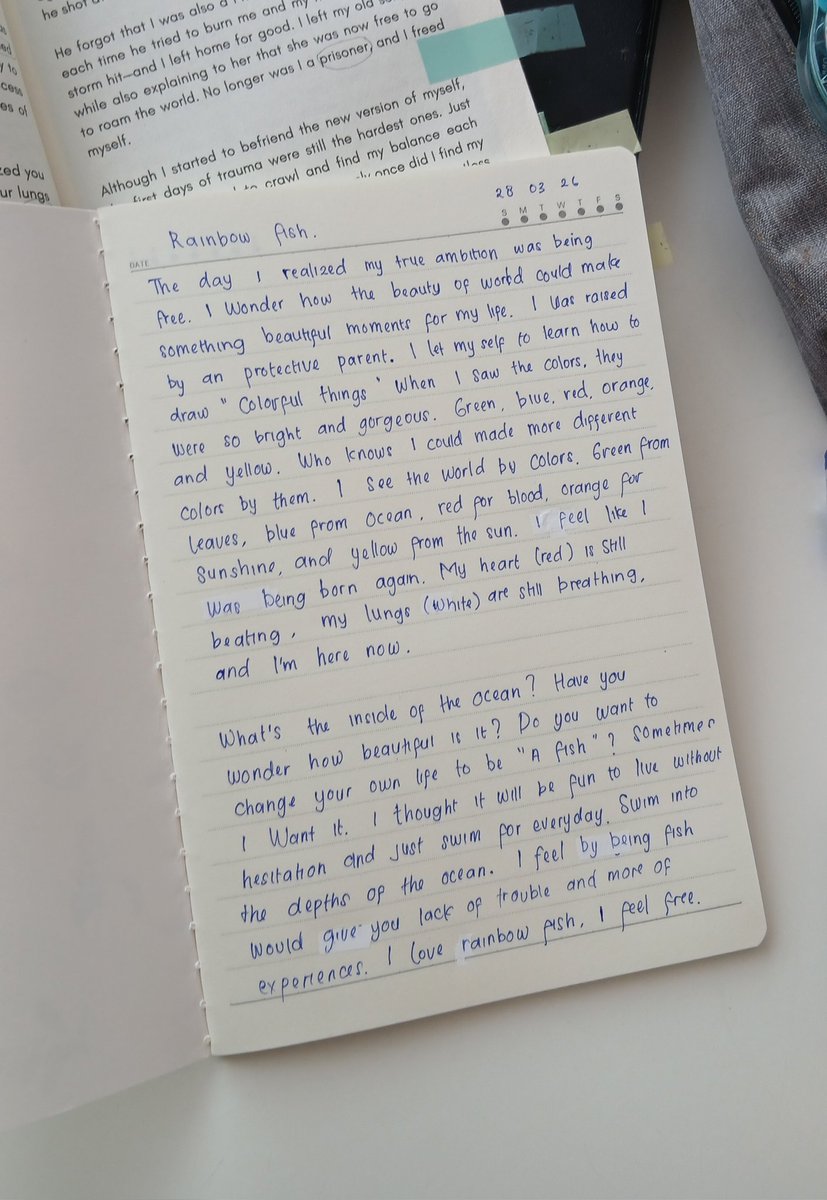 he shot
He forgot that I was also a
each time he tried to burn me and my
storm hit—and I left home for good. I left my old
while also explaining to her that she was now free to go
to roam the world. No longer was I a prisoner, and I freed
myself.
Although I started to befriend the new version of myself,
first days of trauma were still the hardest ones. Just
to crawl and find my balance each
once did I find my
cess
es of
zed you
ur lungs
28 03 26
S M T W T F S
DATE
Rainbow fish.
The day I realized my true ambition was being
free. I Wonder how the beauty of world could make
something beautiful moments for my life. I Was raised
by an protective parent. I let my self to learn how to
draw " Colorful things " When I saw the colors, they
were so bright and gorgeous. Green, blue, red, orange,
and yellow. Who knows I could made more different
colors by them. I see the world by colors. Green from
leaves, blue from ocean, red for blood, orange for
sunshine, and yellow from the sun. I feel like I
Was being born again. My heart (red) is still
beating, my lungs (White) are still breathing,
and I'm here now.
What's the inside of the ocean? Have you
wonder how beautiful is it? Do you want to
change your own life to be "A fish"? Sometimes
I Want it. I thought it will be fun to live without
hesitation and just swim for everyday. Swim into
the depths of the ocean. I feel by being fish
would give you lack of trouble and more of
experiences. I love rainbow fish, I feel free.